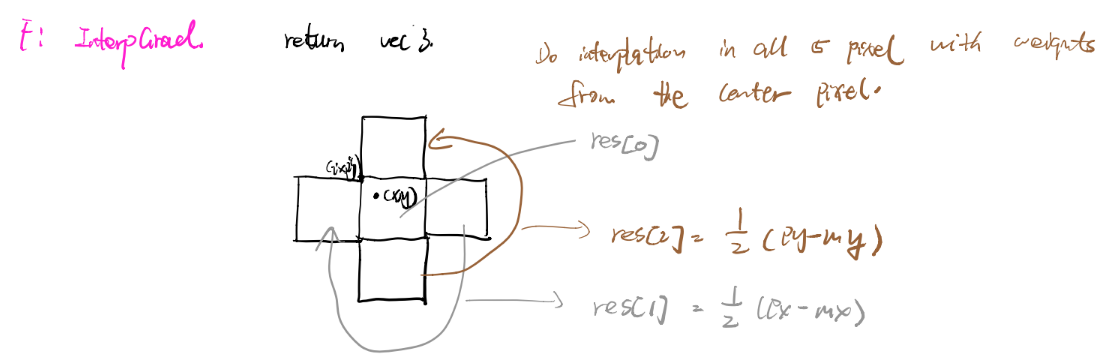 F: InterpGrad. return vec3.
Do interpolation in all 5 pixel with weights
from the center pixel.
res[0]
(ix,iy)
(x,y)
res[2] = 1/2 (py-my)
res[1] = 1/2 (px-mx)